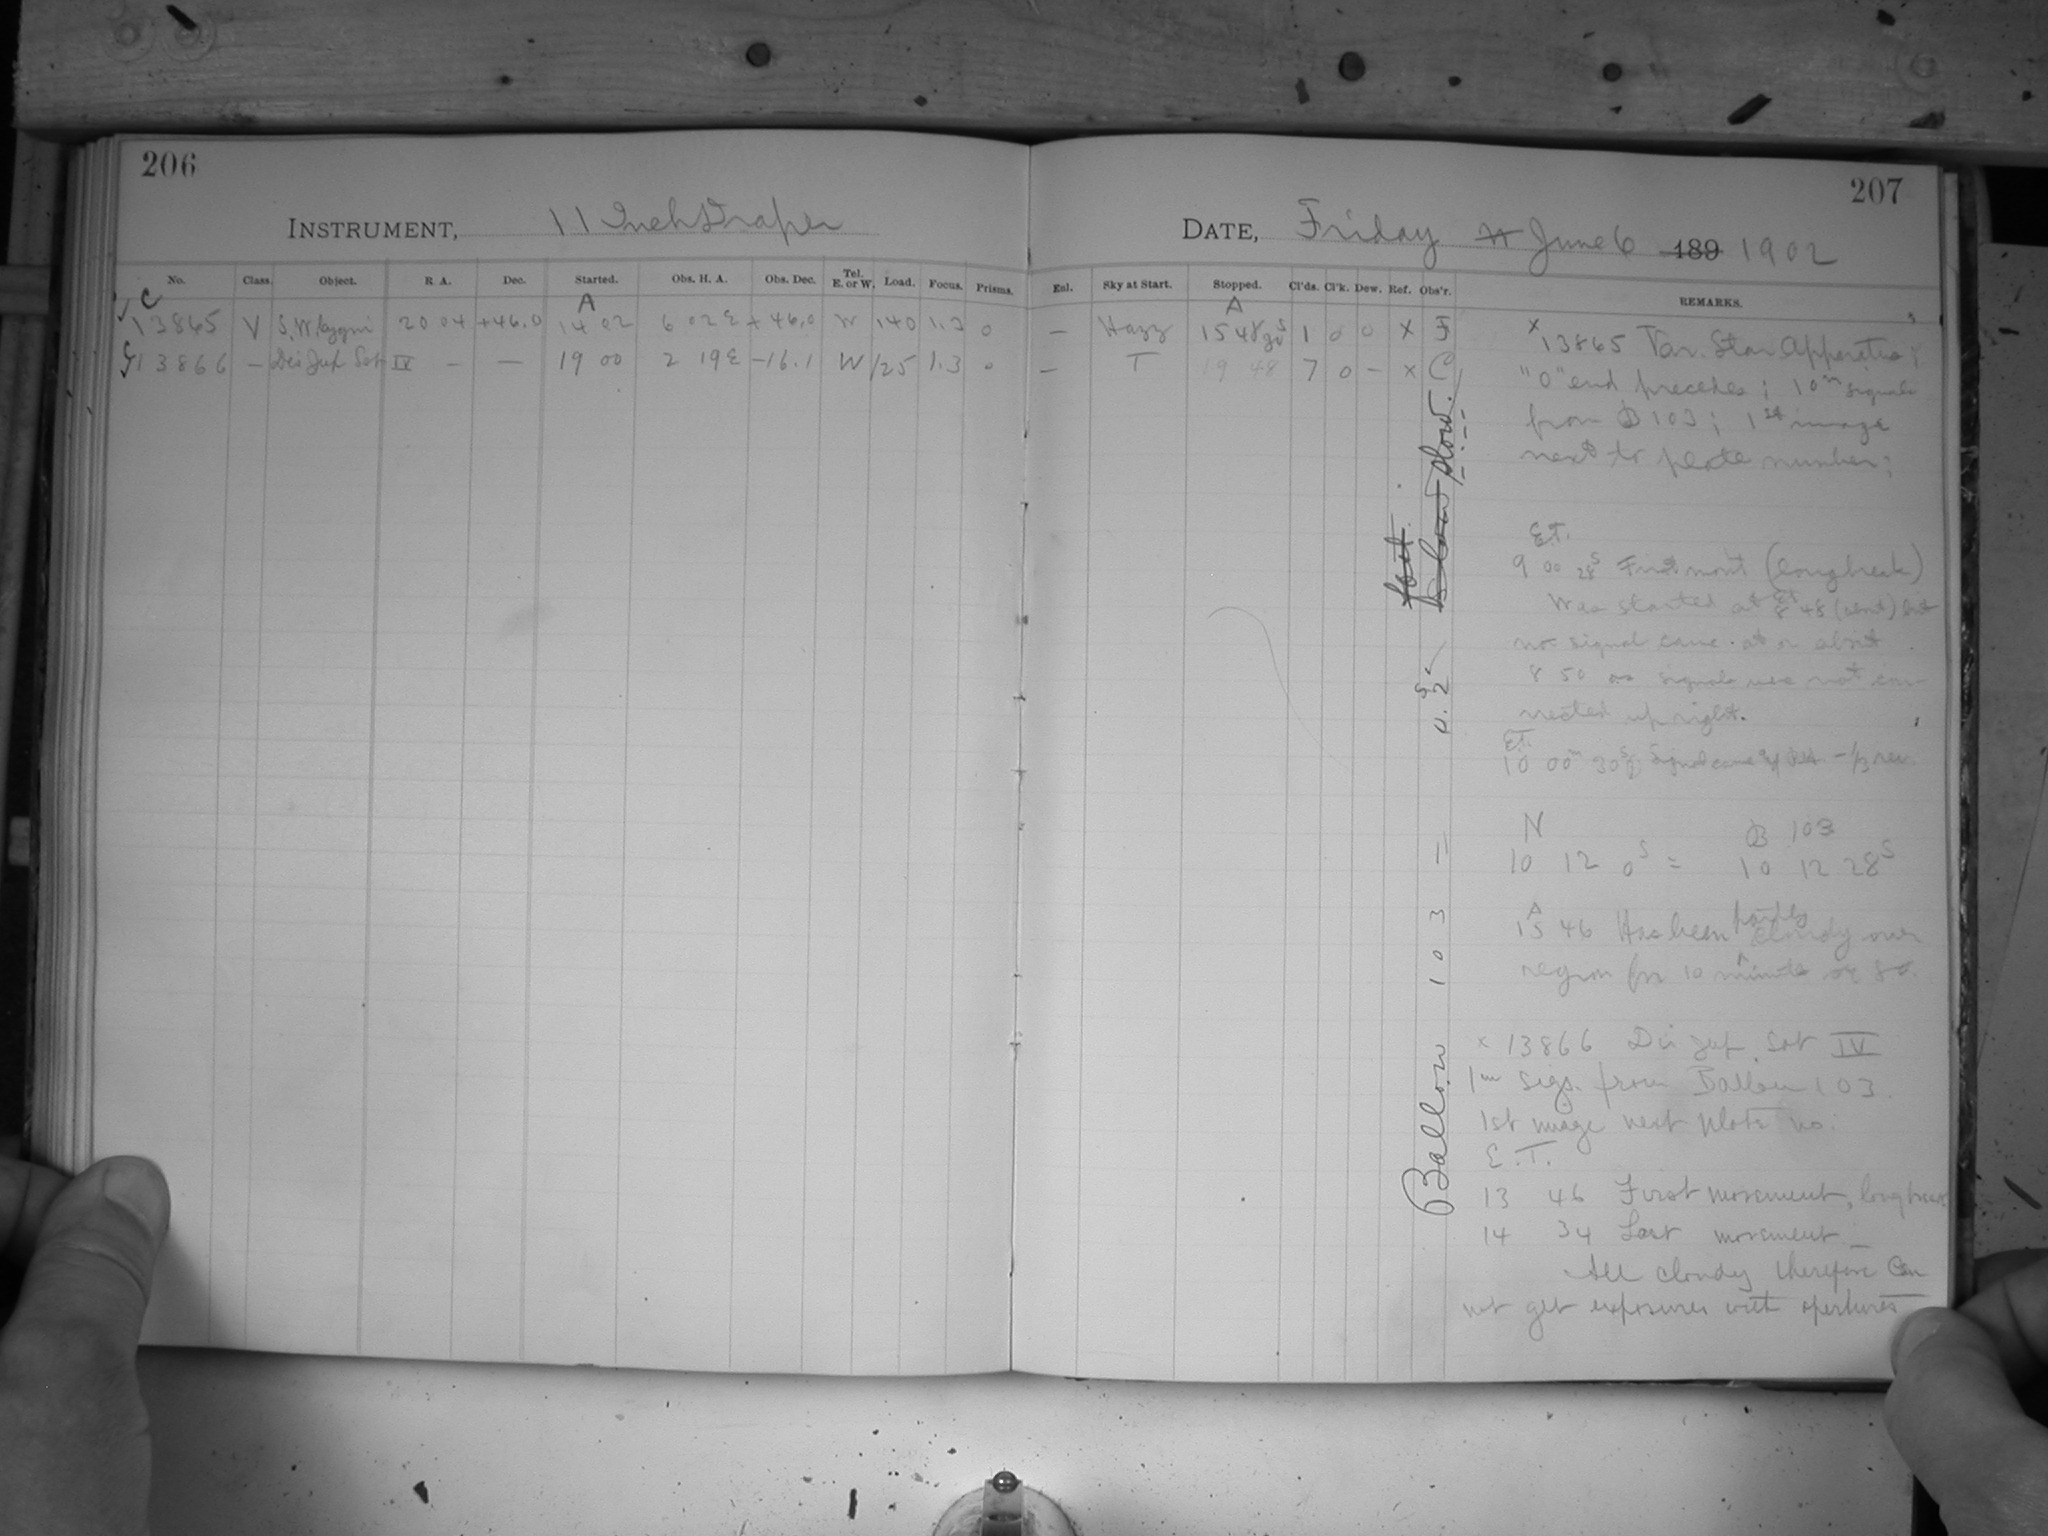 206
INSTRUMENT, 11 Inch Draper
No. Class Object. R. A. Dec. Started. Obs. H. A. Obs. Dec. Tel. E. or W. Load. Focus. Prisms.
C A
13865 V S.W. Cygni 20 04 +46.0 14 02 6 02 E +46.0 W 140 1.3 0
13866 — Dis Jup Sat IV — — 19 00 2 19 E -16.1 W 125 1.3 0
207
DATE, Friday June 6 189 1902
Enl. Sky at Start. Stopped. Cl'ds. Cl'k. Dew. Ref. Obs'r. REMARKS.
A
— Hazy 15 48 1 0 0 x F
— T 19 48 7 0 – x C
x 13865 Var. Star Apparatus;
"O" end precedes; 10m signals
from B 103; 1st image
next to plate number;
E.T.
9 00 28s First movt (long break)
Was started at E.T. 8 48 (abt) but
no signal came at or about
8 50 as signals were not con-
nected up right.
E.T.
10 00m 30s Signal came – 1/3 rev.
N B 103
10 12 0s = 10 12 28s
A
15 46 Has been partly cloudy over
region for 10 minutes or so.
x 13866 Dis Jup. Sat IV
1m sigs. from Ballou 103.
1st image next plate no.
E.T.
13 46 First movement, long break
14 34 Last movement —
All cloudy therefore can
not get exposures with apertures
Ballou 103 = 0.s2 fast. slow slow.